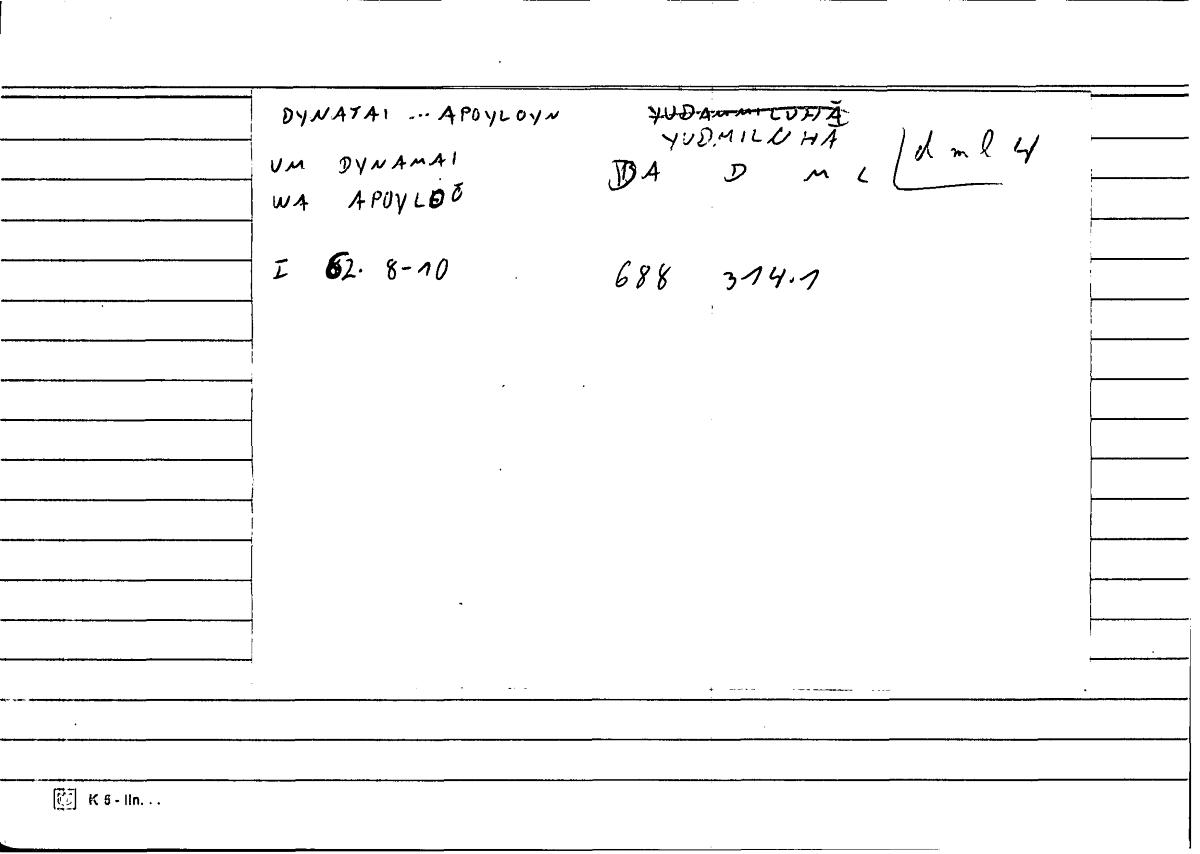 DYNATAI ... APOYLOYN YUDAMMILUHĀ
YUDMILUHA
UM DYNAMAI DA D M L d m l
WA APOYLOŌ
I 62. 8-10 688 314.1
K 5 - lln. . .